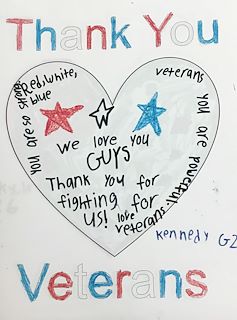 Thank You
Red, white,
blue
you are so strong
veterans you are powerful.
we love you
Guys
Thank you for
fighting for
us! love
veterans.
Kennedy G2
Veterans